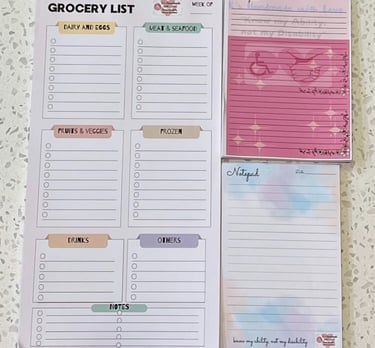 GROCERY LIST
WEEK OF
DAIRY AND EGGS
MEAT & SEAFOOD
FRUITS & VEGGIES
FROZEN
DRINKS
OTHERS
NOTES
Know my Ability
not my Disability
Notepad
know my ability, not my disability